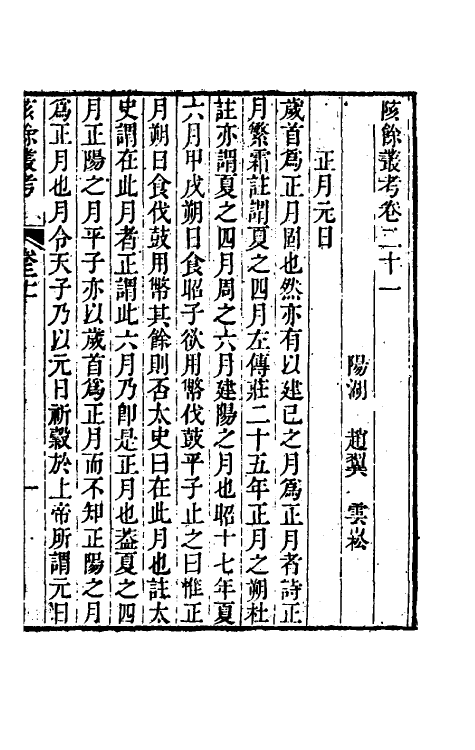 陔餘叢考卷二十一
陽湖 趙翼 雲崧
正月元日
歲首爲正月固也然亦有以建巳之月爲正月者詩正
月繁霜註謂夏之四月左傳莊二十五年正月之朔杜
註亦謂夏之四月周之六月建陽之月也昭十七年夏
六月甲戌朔日食昭子欲用幣伐鼓平子止之曰惟正
月朔日食伐鼓用幣其餘則否太史曰在此月也註太
史謂在此月者正謂此六月乃卽是正月也葢夏之四
月正陽之月平子亦以歲首爲正月而不知正陽之月
爲正月也月令天子乃以元日祈穀於上帝所謂元日
陔餘叢考
一